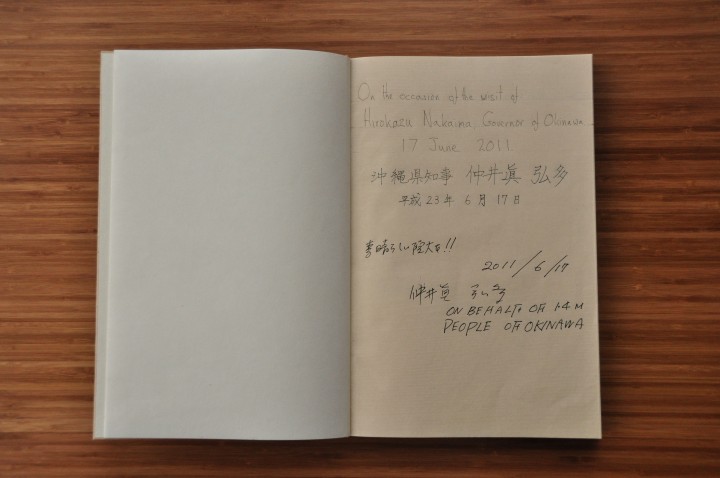 On the occasion of the visit of
Hirokazu Nakaima, Governor of Okinawa
17 June 2011
沖縄県知事 仲井眞 弘多
平成 23年 6月 17日
素晴らしい院大を!!
2011/6/17
仲井眞 弘多
ON BEHALF OF 1.4 M
PEOPLE OF OKINAWA